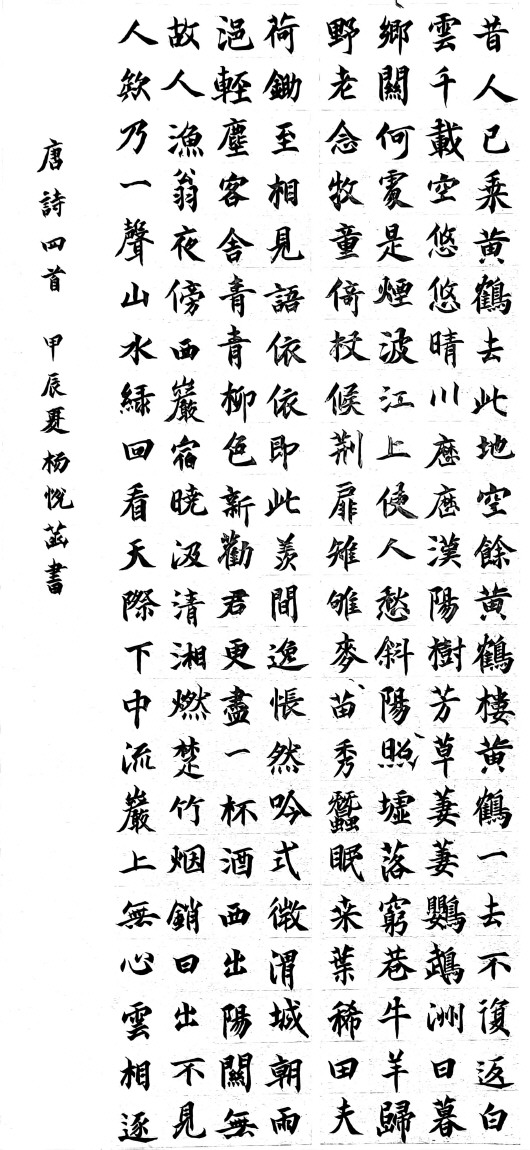 昔人已乘黄鶴去此地空餘黄鶴樓黄鶴一去不復返白
雲千載空悠悠晴川歷歷漢陽樹芳草萋萋鸚鵡洲日暮
鄉關何處是煙波江上使人愁斜陽照墟落窮巷牛羊歸
野老念牧童倚杖候荆扉雉雊麥苗秀蠶眠桑葉稀田夫
荷鋤至相見語依依即此羨間逸悵然吟式微渭城朝雨
浥輕塵客舍青青柳色新勸君更盡一杯酒西出陽關無
故人漁翁夜傍西巖宿曉汲清湘燃楚竹烟銷日出不見
人欸乃一聲山水綠回看天際下中流巖上無心雲相逐
唐詩四首 甲辰夏楊悅菡書